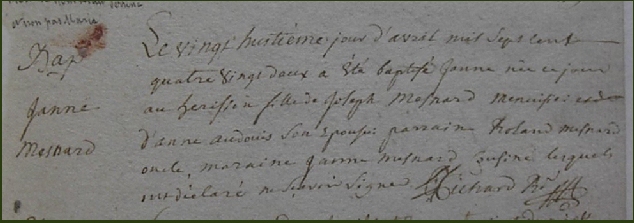 et non pas Marie
Bap
Janne
Mesnard
Le vingt huitième jour d'avril mil sept cent
quatre vingt deux a été baptisé Janne née ce jour
au herisson fille de Joseph Mesnard menuisier et
d'anne audouis son epouse: parraine Roland mesnard
oncle, maraine Janne mesnard cousine lesquels
ont déclaré ne scavoir signe Richard